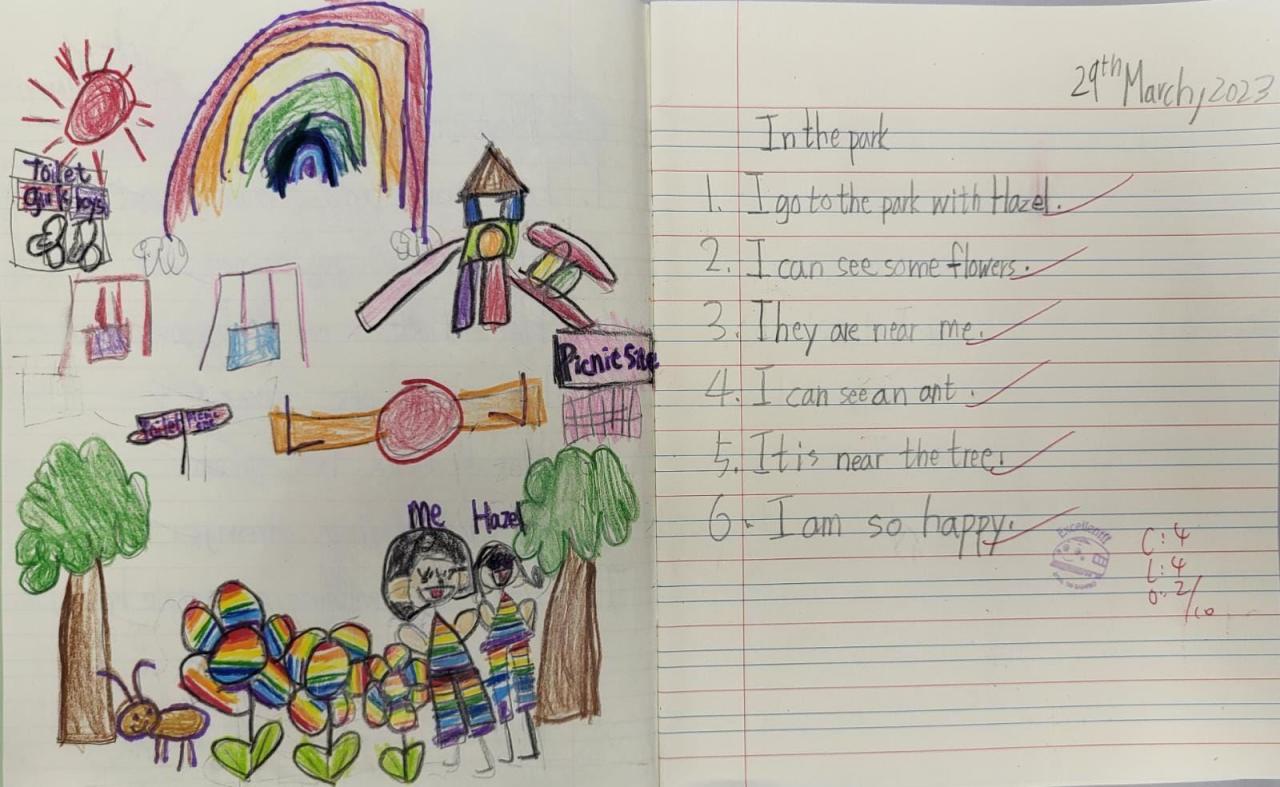 Toilet
girls boys
Picnic Site
Toilet Picnic
site
Me Hazel
29th March, 2023
In the park
1. I go to the park with Hazel.
2. I can see some flowers.
3. They are near me.
4. I can see an ant.
5. It is near the tree.
6. I am so happy.
Excellent!!
C: 4
L: 4
O: 2/10